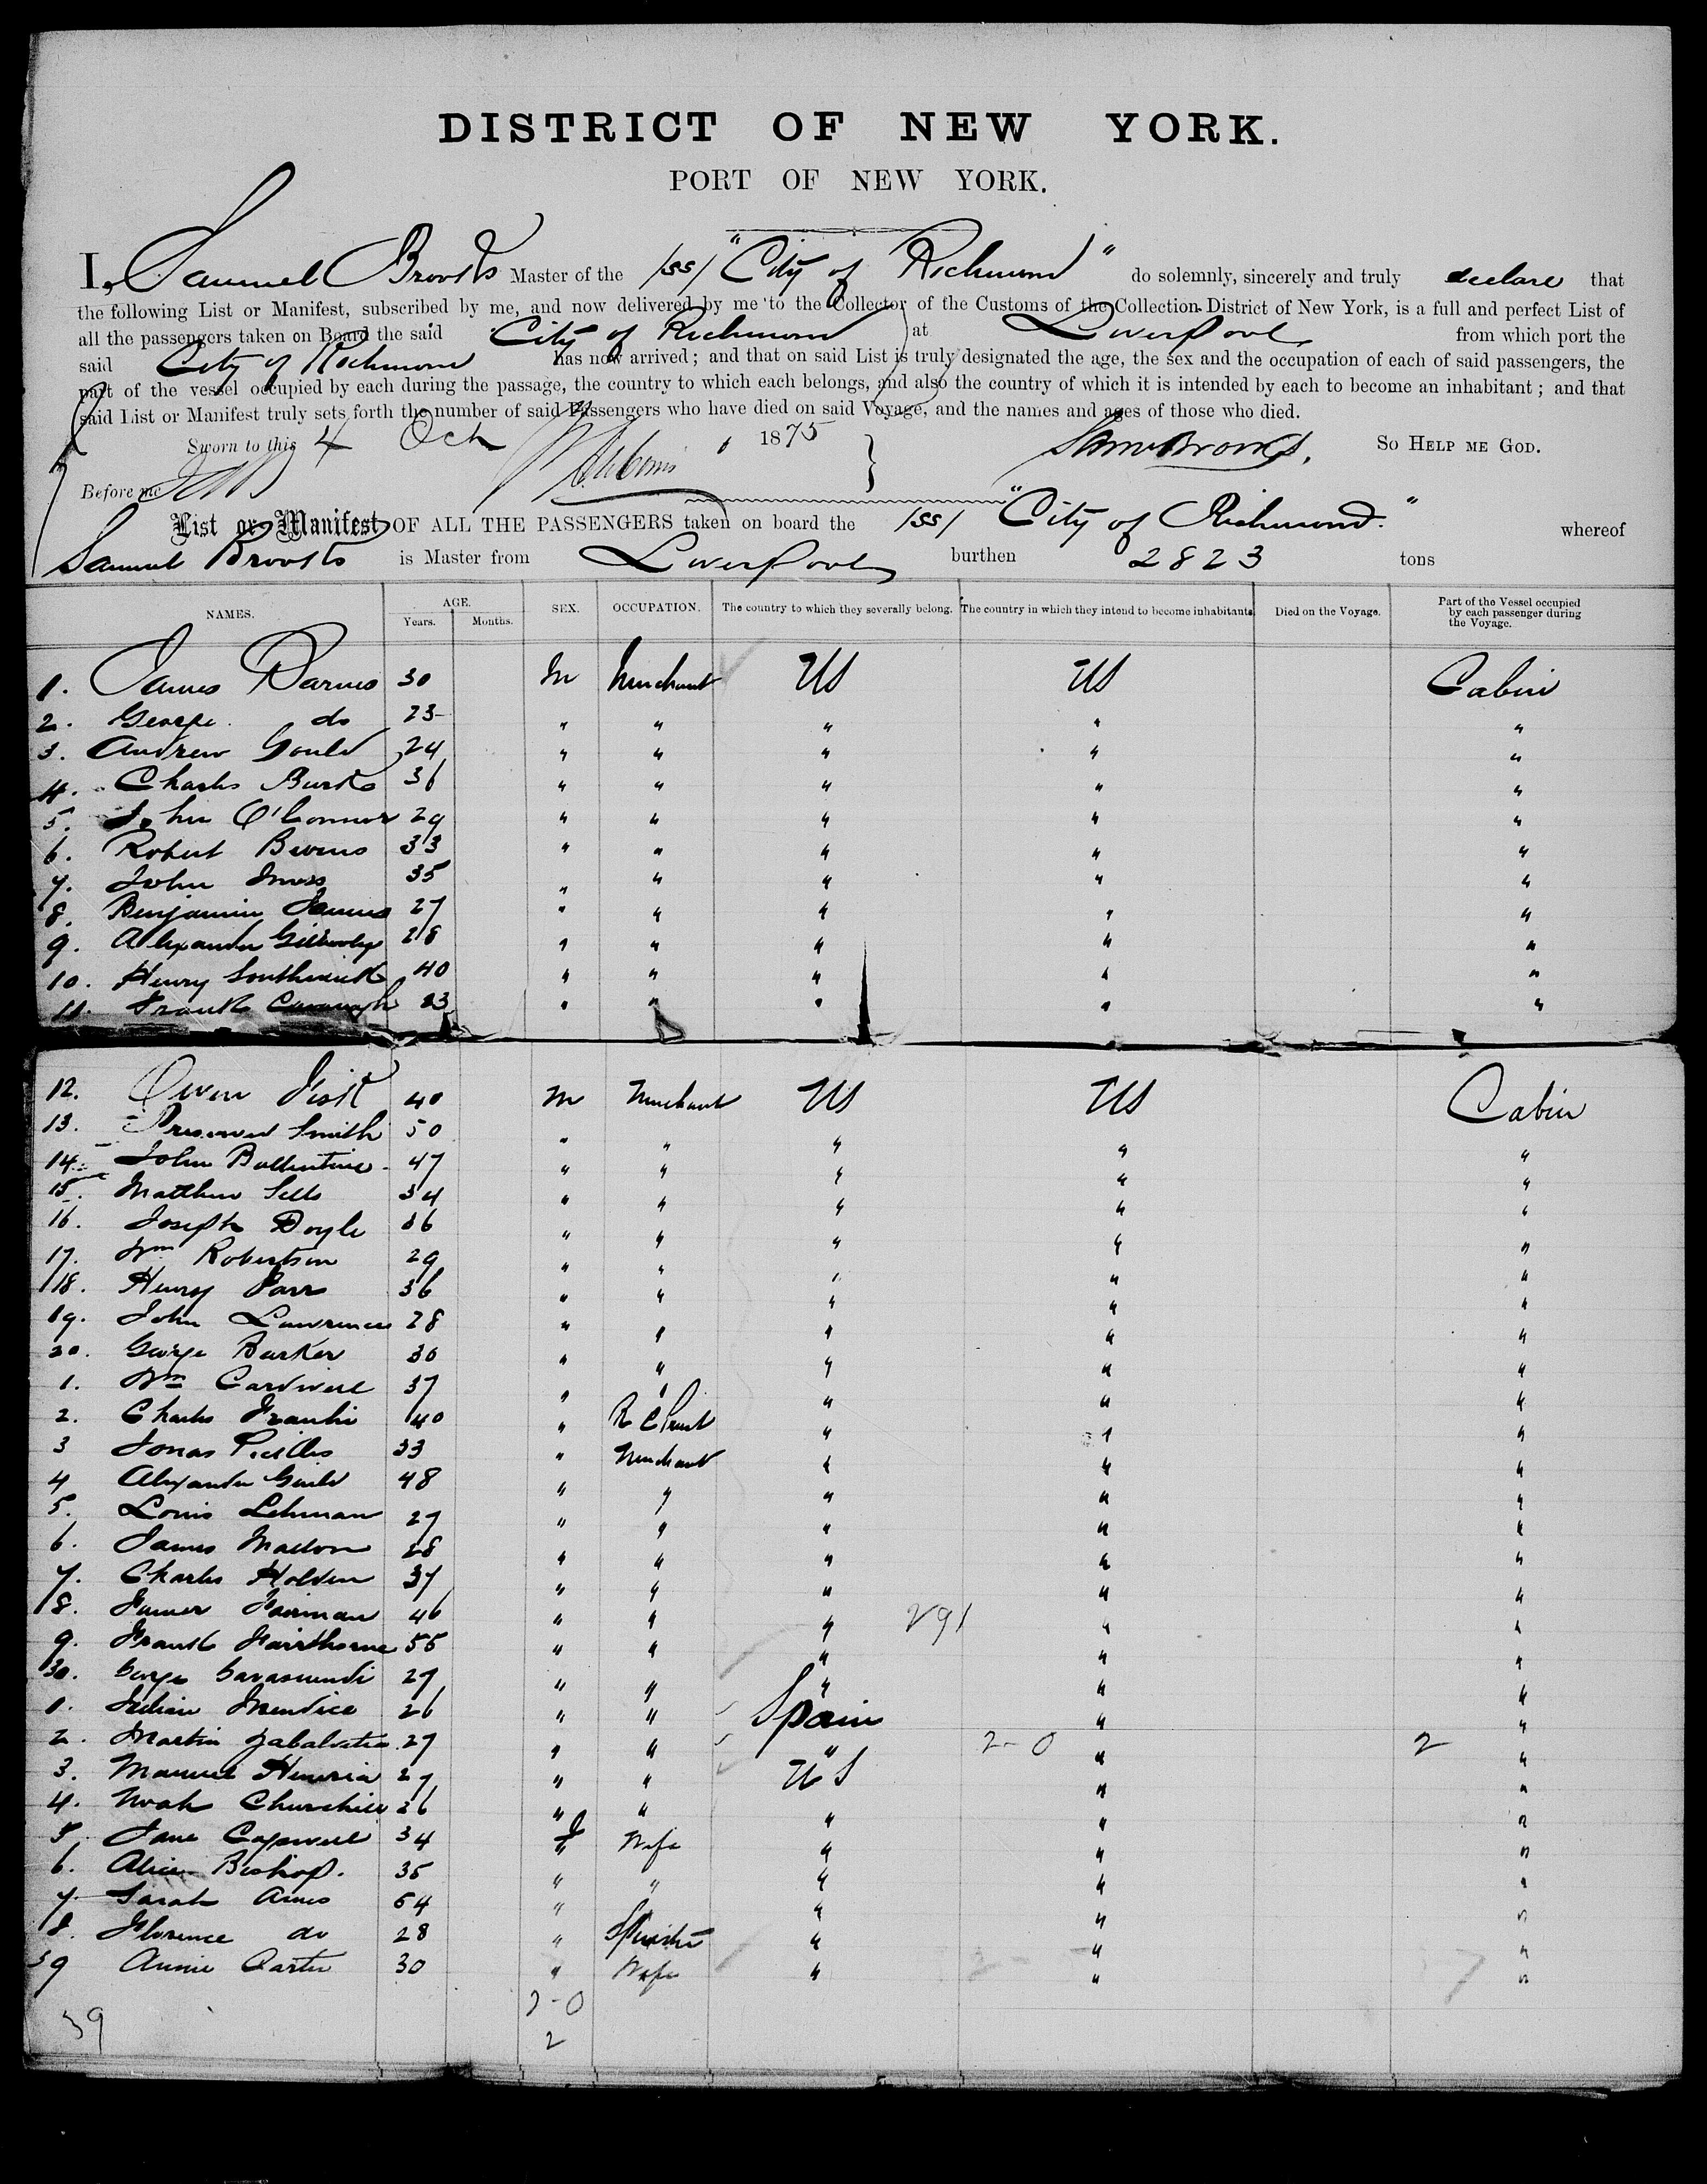 DISTRICT OF NEW YORK.
PORT OF NEW YORK.
I, Samuel Brooks Master of the /ss/ "City of Richmond" do solemnly, sincerely and truly declare that
the following List or Manifest, subscribed by me, and now delivered by me to the Collector of the Customs of the Collection District of New York, is a full and perfect List of
all the passengers taken on Board the said City of Richmond at Liverpool from which port the
said City of Richmond has now arrived; and that on said List is truly designated the age, the sex and the occupation of each of said passengers, the
part of the vessel occupied by each during the passage, the country to which each belongs, and also the country of which it is intended by each to become an inhabitant; and that
said List or Manifest truly sets forth the number of said Passengers who have died on said Voyage, and the names and ages of those who died.
Sworn to this 4 Oct 1875 Saml Brooks. SO HELP ME GOD.
Before me
List or Manifest OF ALL THE PASSENGERS taken on board the /ss/ "City of Richmond." whereof
Samuel Brooks is Master from Liverpool burthen 2823 tons
NAMES. AGE. Years. Months. SEX. OCCUPATION. The country to which they severally belong. The country in which they intend to become inhabitants. Died on the Voyage. Part of the Vessel occupied by each passenger during the Voyage.
1. James Barnes 30 M Merchant US US Cabin
2. George do 23 " " " " "
3. Andrew Gould 24 " " " " "
4. Charles Burks 36 " " " " "
5. John O'Connor 29 " " " " "
6. Robert Bevens 33 " " " " "
7. John 35 " " " " "
8. Benjamin 27 " " " " "
9. Alexander 28 " " " " "
10. Henry Southwick 40 " " " " "
11. Frank Cavanagh 23 " " " " "
12. Owen Fisk 40 M Merchant US US Cabin
13. Preserved Smith 50 " " " " "
14. John Ballentine 47 " " " " "
15. Matthew Sells 34 " " " " "
16. Joseph Doyle 36 " " " " "
17. Wm Robertson 29 " " " " "
18. Henry Parr 36 " " " " "
19. John Lawrence 28 " " " " "
20. George Barker 30 " " " " "
1. Wm Cardwell 37 " " " " "
2. Charles 40 " R C Priest " " "
3 Jonas Pickles 33 " Merchant " " "
4 Alexander Guild 48 " " " " "
5. Louis Lehman 27 " " " " "
6. James Mallon 28 " " " " "
7. Charles Holden 37 " " " " "
8. Fairman 46 " " " 291 " "
9. Frank Fairthorne 55 " " " " "
30. George 27 " " " " "
1. Julian 26 " " Spain " "
2. Martin 27 " " " 2-0 " 2 "
3. Manuel 27 " " US " "
4. Noah Churchill 26 " " " " "
5. Jane Capwell 34 f Wife " " "
6. Alice Bishop. 35 " " " " "
7. Sarah Ames 54 " " " "
8. Florence do 28 " Spinster " " "
39 Annie Carter 30 " Wife " " "
39 2-0
2